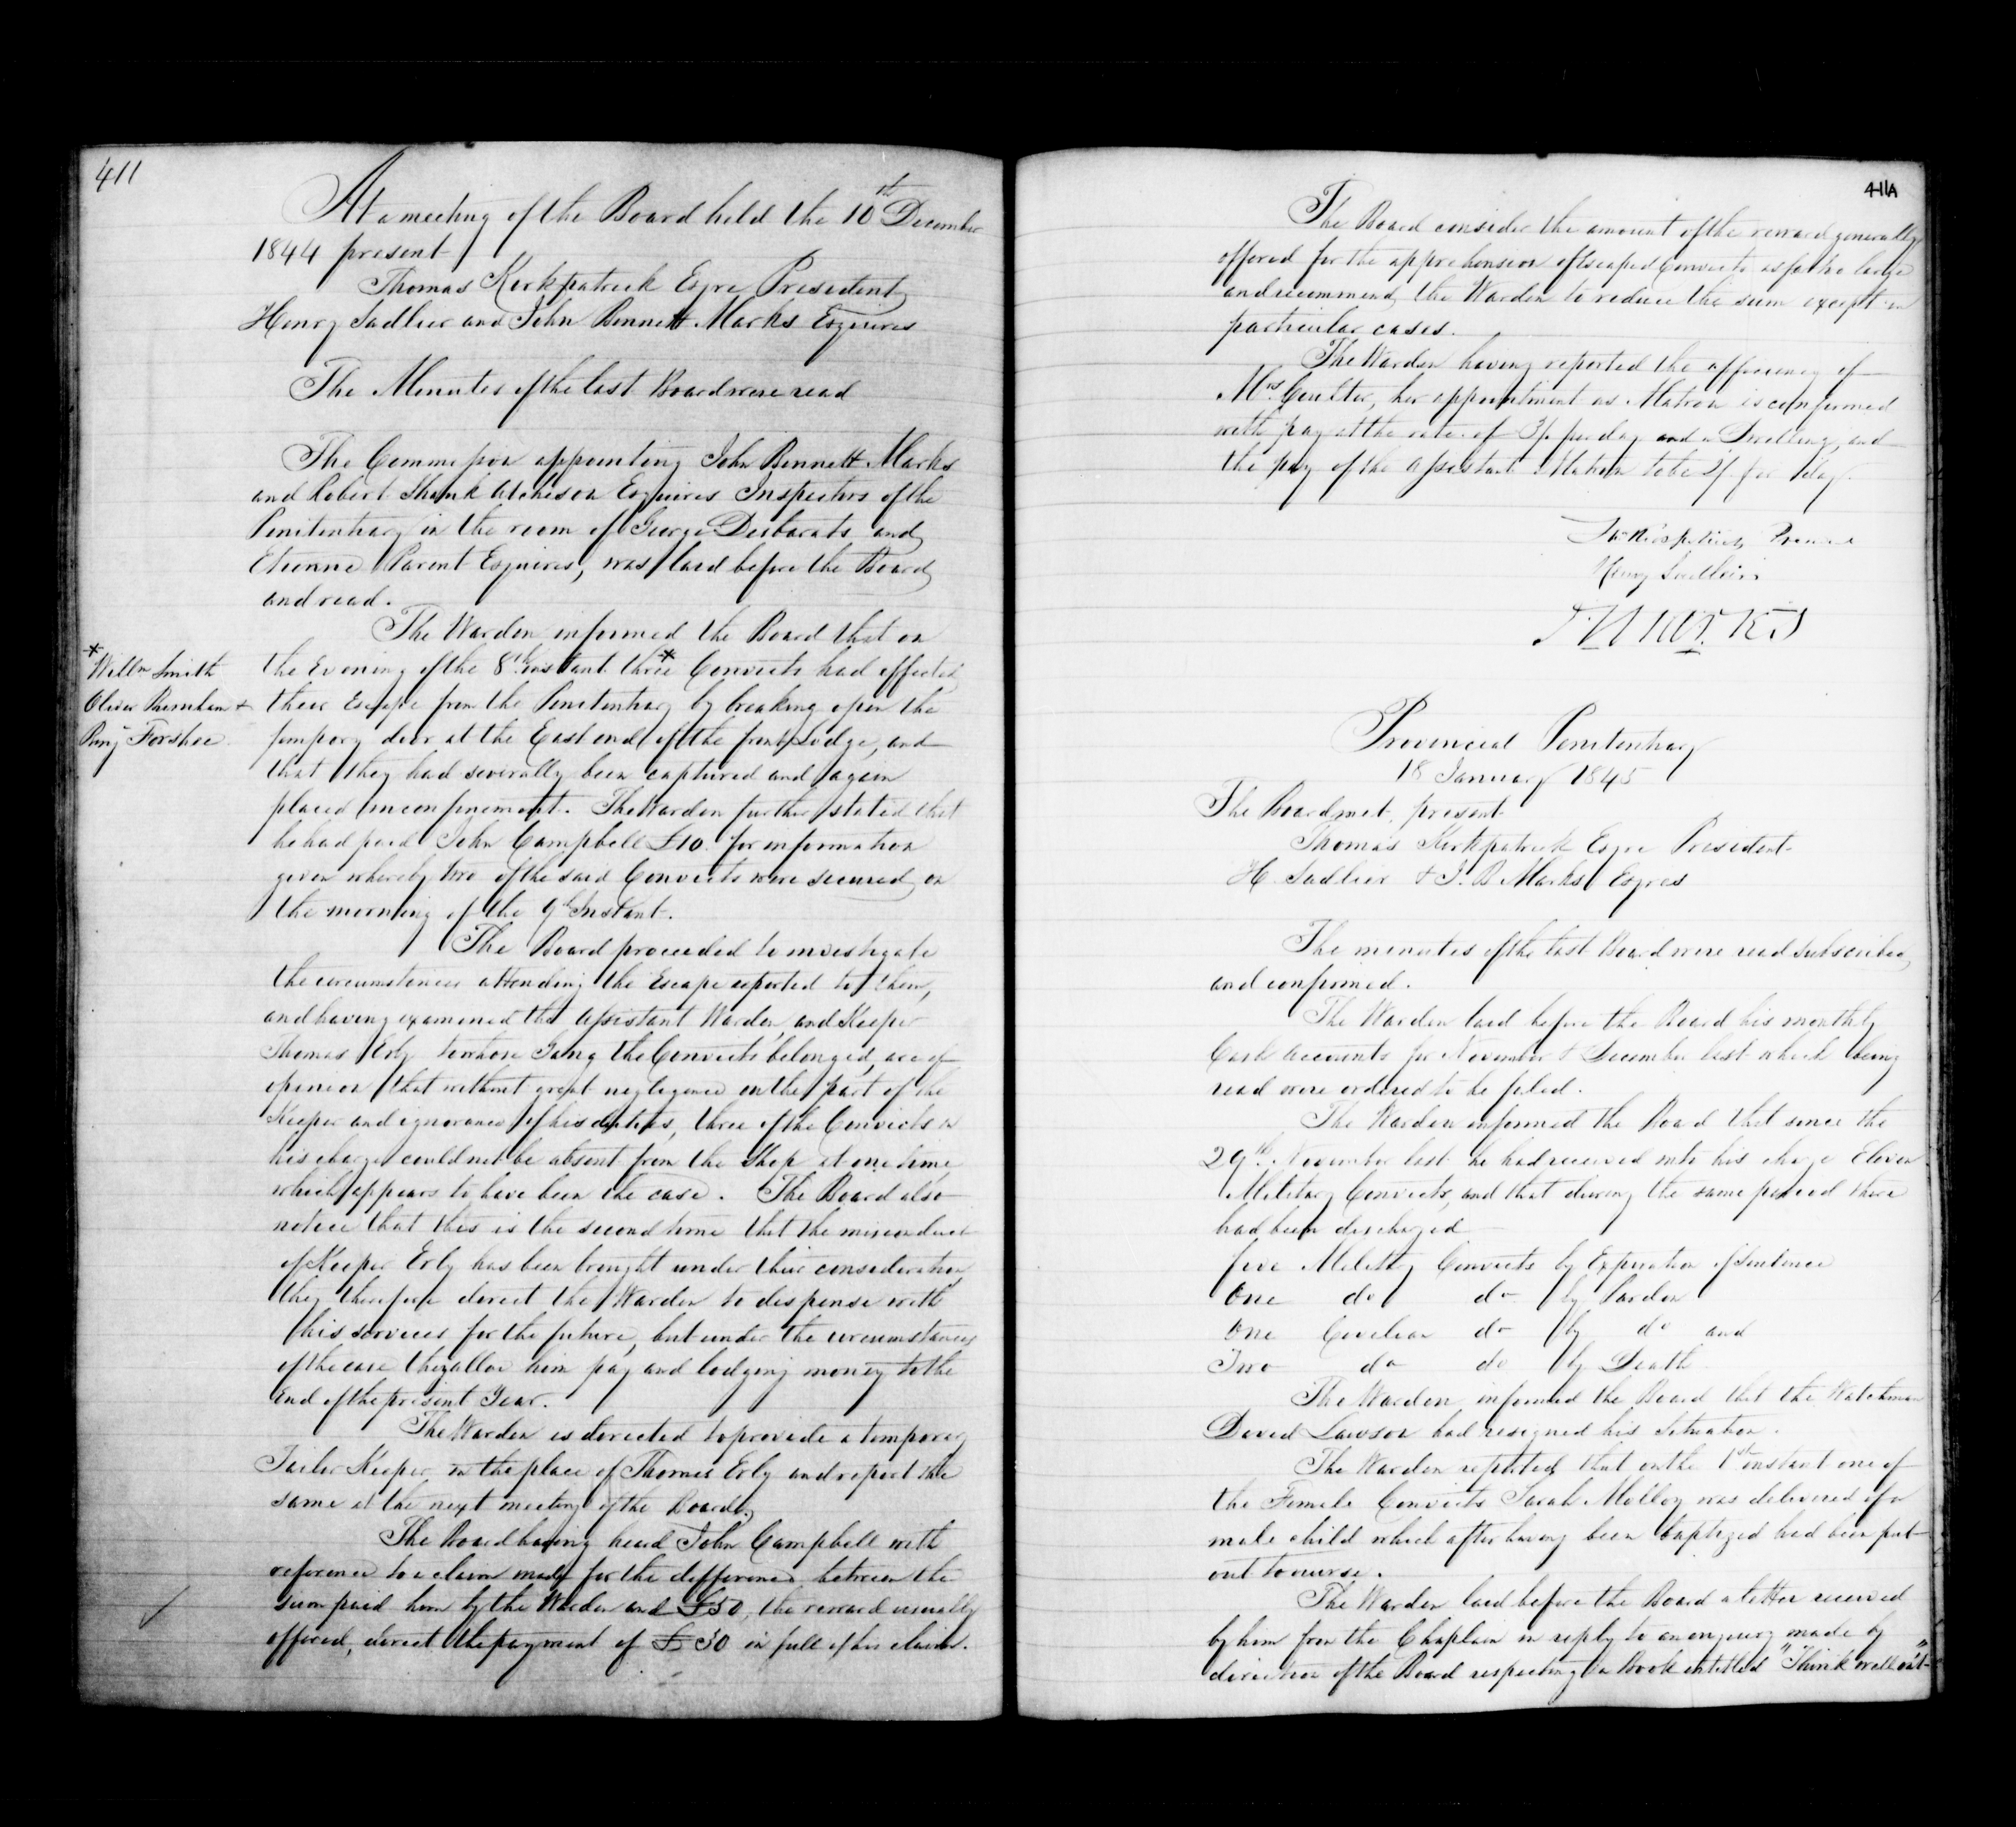 411
At a meeting of the Board held the 10th December
1844 present
Thomas Kirkpatrick Esqre President
Henry Sadlier and John Bennett Marks Esquires
The Minutes of the last Board were read
The Commission appointing John Bennett Marks
and Robert Shank Atcheson Esquires Inspectors of the
Penitentiary in the room of George Desbarats and
Etienne Parent Esquires, was laid before the Board
and read.
The Warden informed the Board that on
the Evening of the 8th instant three * Convicts had effected
their Escape from the Penitentiary by breaking open the
temporary door at the East end of the front Lodge, and
that they had severally been captured and again
placed in confinement. The Warden further stated that
he had paid John Campbell £10 for information
given whereby two of the said Convicts were secured on
the morning of the 9th Instant.
* Willm Smith
Oliver Burnham &
Benj Forshee
The Board proceeded to investigate
the circumstances attending the Escape reported to them,
and having examined the Assistant Warden, and Keeper
Thomas Erly to whose Gang the Convicts belonged, are of
opinion that without great negligence on the part of the
Keeper and ignorance of his duties, three of the Convicts in
his charge could not be absent from the Shop at one time,
which appears to have been the case. The Board also
notice that this is the second time that the misconduct
of Keeper Erly has been brought under their consideration
they therefore direct the Warden to dispense with
his services for the future, but under the circumstances
of the case they allow him pay and lodging money to the
End of the present Year.
The Warden is directed to provide a temporary
Tailor Keeper in the place of Thomas Erly and report the
same at the next meeting of the Board.
The Board having heard John Campbell with
reference to a claim made for the difference between the
sum paid him by the Warden and £50, the reward usually
offered, direct the payment of £30 in full of his claim.
411A
The Board consider the amount of the reward generally
offered for the apprehension of Escaped Convicts as far too large
and recommend the Warden to reduce the sum except in
particular cases.
The Warden having reported the efficiency of
Mrs. Coulter, her appointment as Matron is confirmed
with pay at the rate of 3/ per day and a Dwelling, and
the pay of the Assistant Matron to be 2/ per day.
Thos Kirkpatrick President
Henry Sadlier
J B Marks
Provincial Penitentiary
18 January 1845
The Board met, present
Thomas Kirkpatrick Esqre President
H. Sadlier & J. B Marks Esqres
The minutes of the last Board were read subscribed
and confirmed.
The Warden laid before the Board his monthly
Cash Accounts for November & December last which being
read were ordered to be filed.
The Warden informed the Board that since the
29th November last he had received into his charge Eleven
Military Convicts, and that during the same period there
had been discharged
five Military Convicts by Expiration of Sentence
One do do by Pardon
One Civilian do by do and
Two do do by Death
The Warden informed the Board that the Watchman
David Lawson had resigned his Situation.
The Warden reported that on the 1st instant one of
the Female Convicts Sarah Molloy was delivered of a
male child which after having been baptized had been put
out to nurse.
The Warden laid before the Board a letter received
by him from the Chaplain in reply to an enquiry made by
direction of the Board respecting a Book entitled "Think well on't"